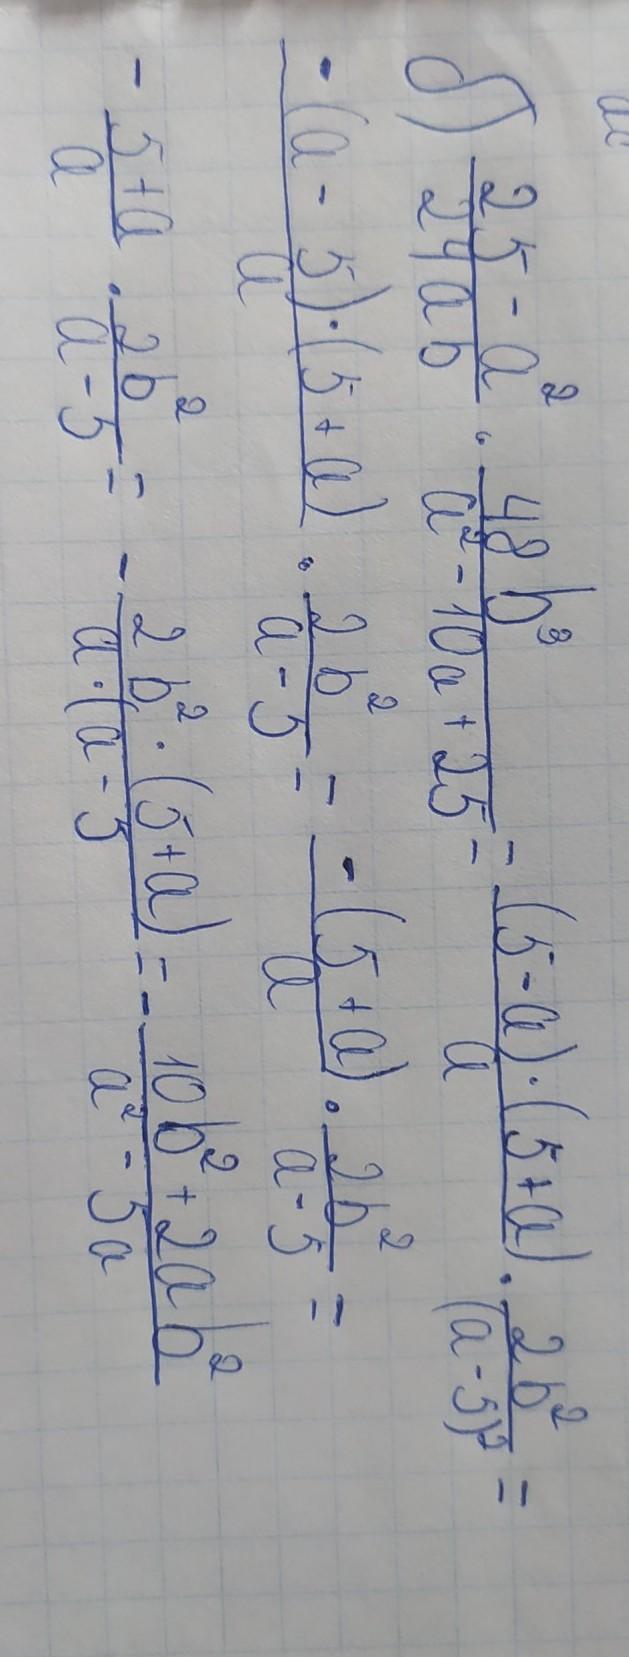 б) (25 - a²)/(24ab) · (48b³)/(a² - 10a + 25) = ((5 - a) · (5 + a))/a · (2b²)/((a - 5)²) =
(-(a - 5) · (5 + a))/a · (2b²)/(a - 5) = (-(5 + a))/a · (2b²)/(a - 5) =
- (5 + a)/a · (2b²)/(a - 5) = - (2b² · (5 + a))/(a · (a - 5) = - (10b² + 2ab²)/(a² - 5a)